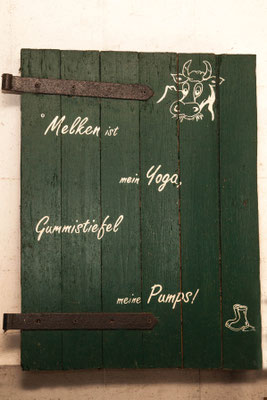 Melken ist
mein Yoga,
Gummistiefel
meine Pumps!